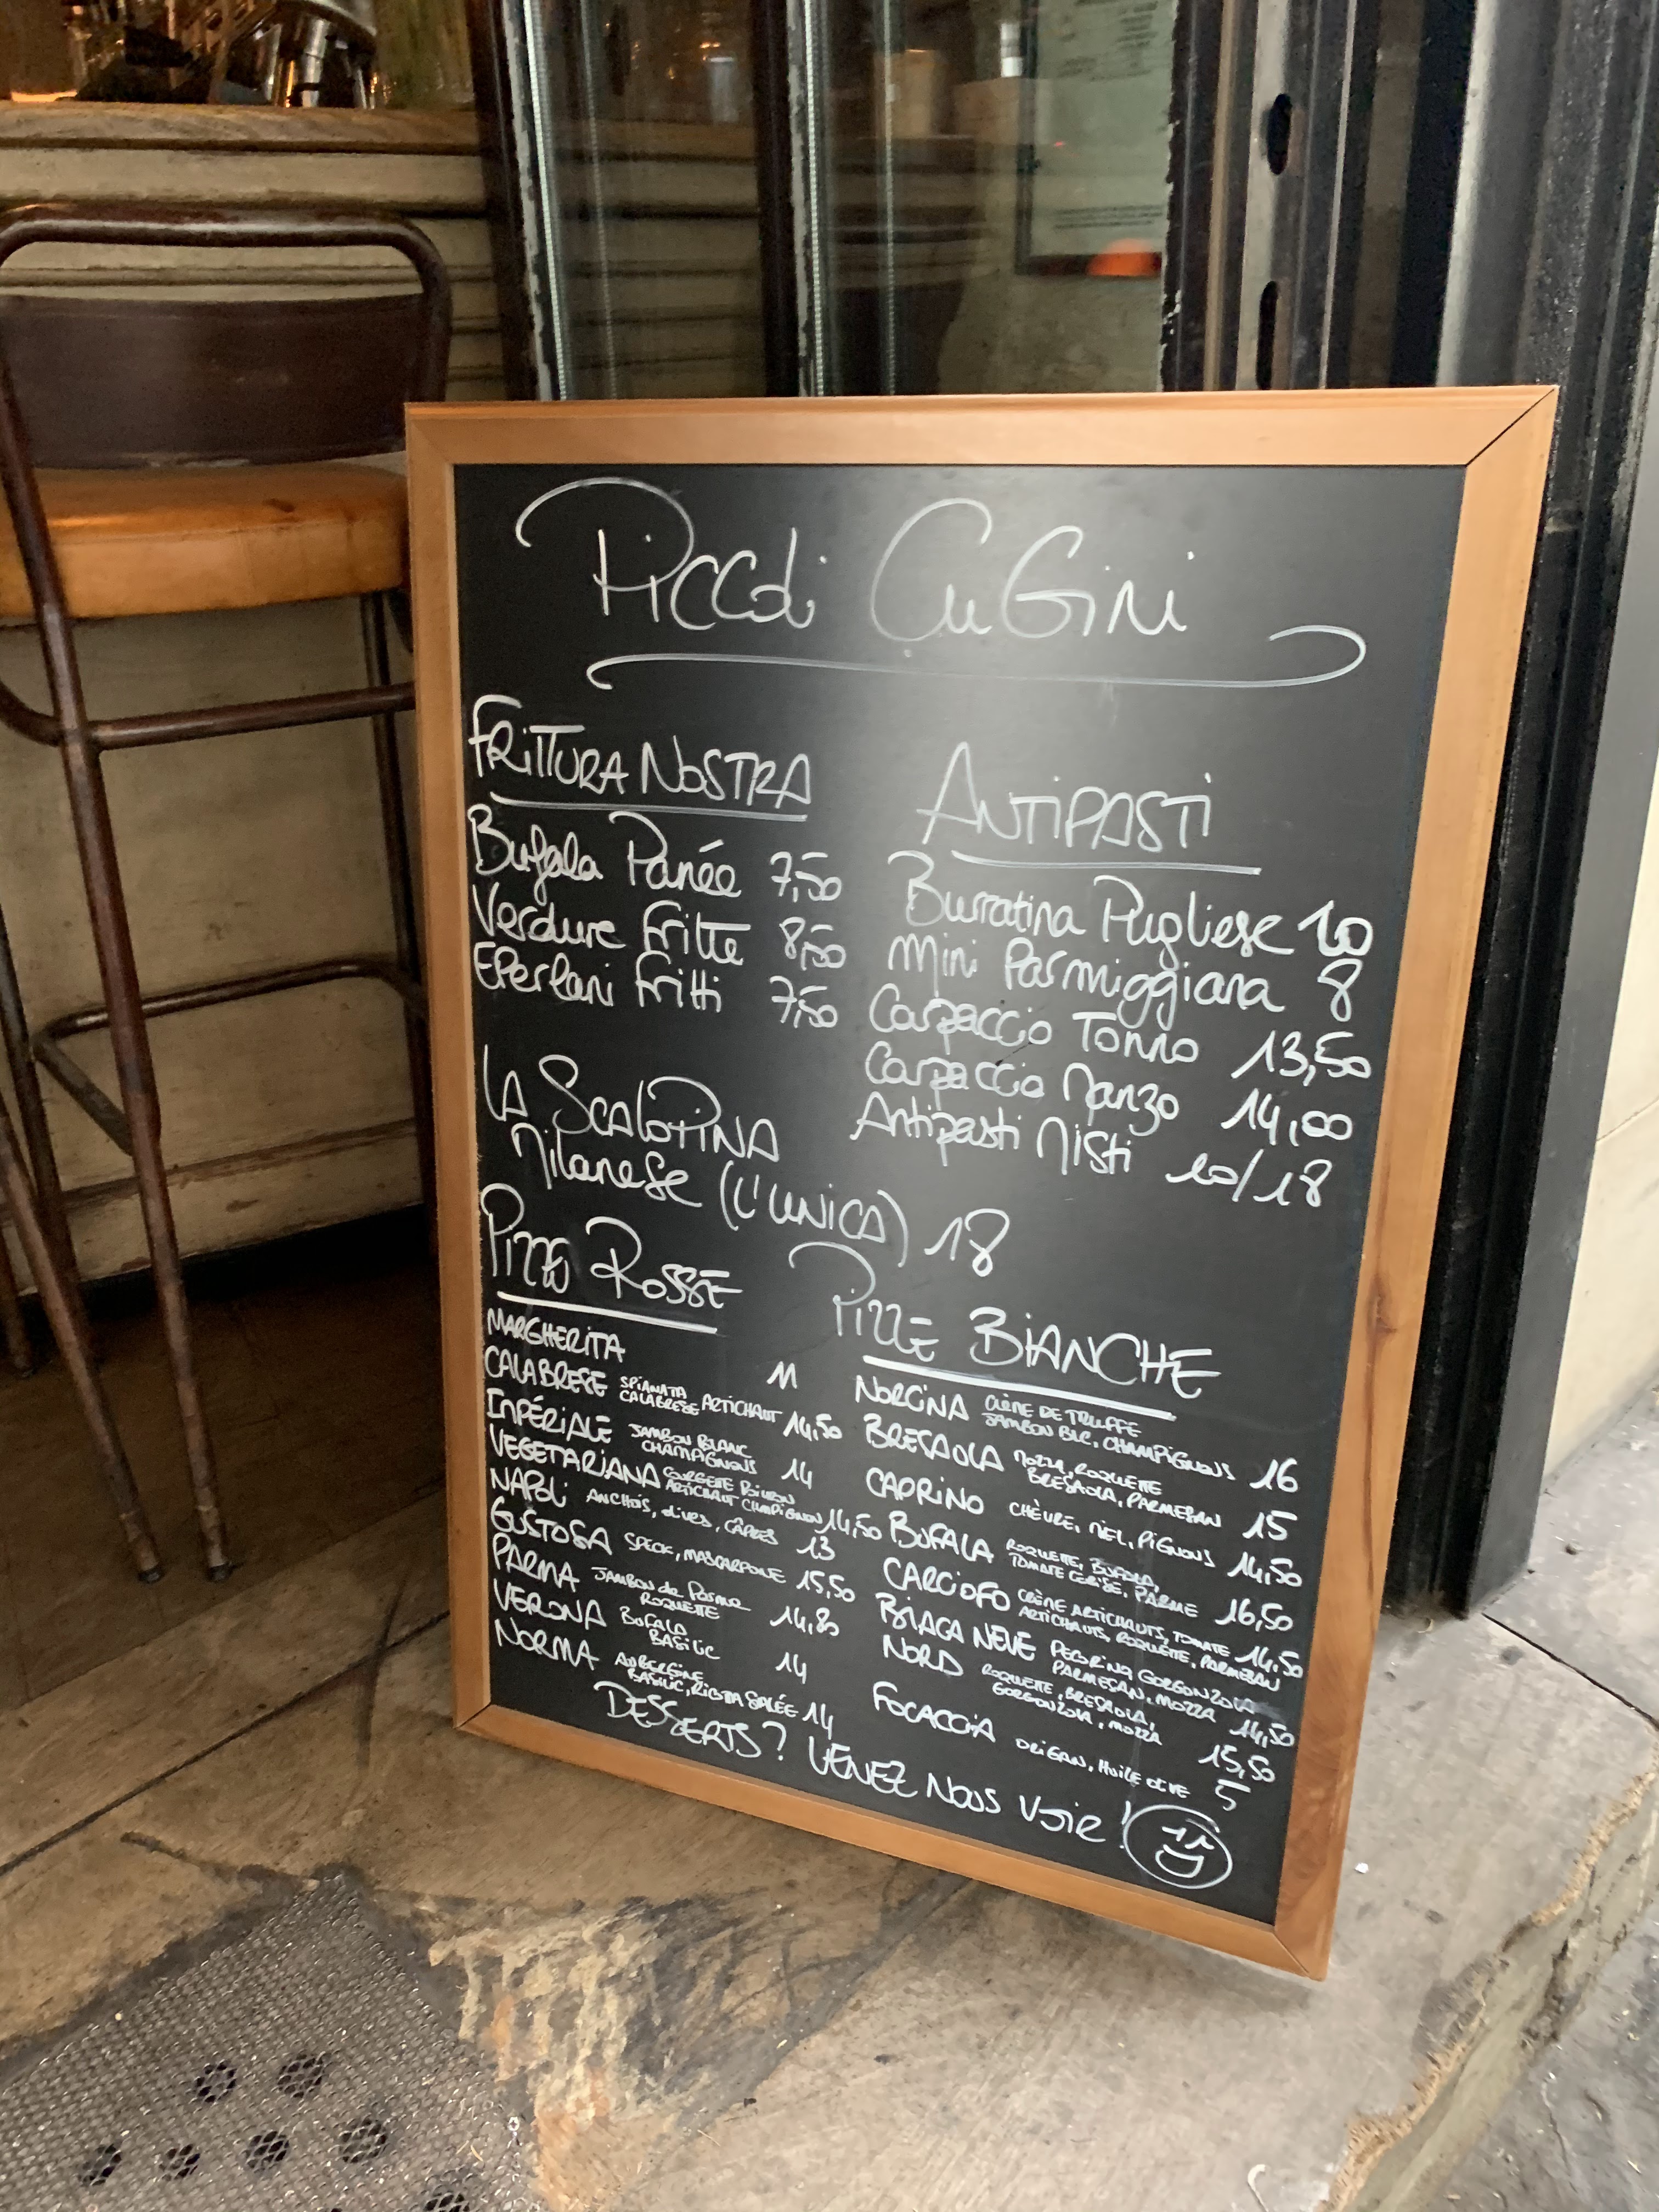 Piccoli Cugini
Frittura Nostra
Bufala Panée 7,50
Verdure Fritte 8,50
Eperlani Fritti 7,50
La Scalopina
Milanese (l'unica) 18
Antipasti
Burratina Pugliese 10
Mini Parmiggiana 8
Carpaccio Tonno 13,50
Carpaccio Manzo 14,00
Antipasti Misti 10/18
Pizze Rosse
MARGHERITA 11
CALABRESE SPIANATA CALABRESE ARTICHAUT 14,50
IMPÉRIALE JAMBON BLANC CHAMPIGNONS 14
VEGETARIANA COURGETTE POIVRON ARTICHAUT CHAMPIGNON 14,50
NAPOLI ANCHOIS, OLIVES, CÂPRES 13
GUSTOSA SPECK, MASCARPONE 15,50
PARMA JAMBON de Parme ROQUETTE 14,80
VERONA BUFALA BASILIC 14
NORMA AUBERGINE BASILIC, RICOTTA SALÉE 14
PIZZE BIANCHE
NORCINA CRÈME DE TRUFFE JAMBON BLC, CHAMPIGNONS 16
BRESAOLA MOZZA, ROQUETTE BRESAOLA, PARMESAN 15
CAPRINO CHÈVRE, MIEL, PIGNONS 14,50
BUFALA ROQUETTE, BUFALA, TOMATE CERISE, PARME 16,50
CARCIOFO CRÈME ARTICHAUTS, TOMATE ARTICHAUTS, ROQUETTE, PARMESAN 14,50
BIACA NEVE PECORINO GORGONZOLA PARMESAN, MOZZA 14,50
NORD ROQUETTE, BRESAOLA, GORGONZOLA, MOZZA 15,50
FOCACCIA ORIGAN, HUILE OLIVE 5
DESSERTS? VENEZ NOUS VOIR!